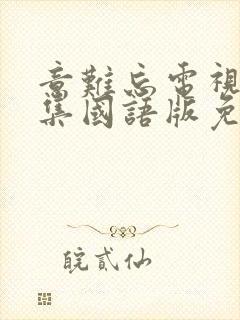 意難忘電視
集國語版免
皖貳仙